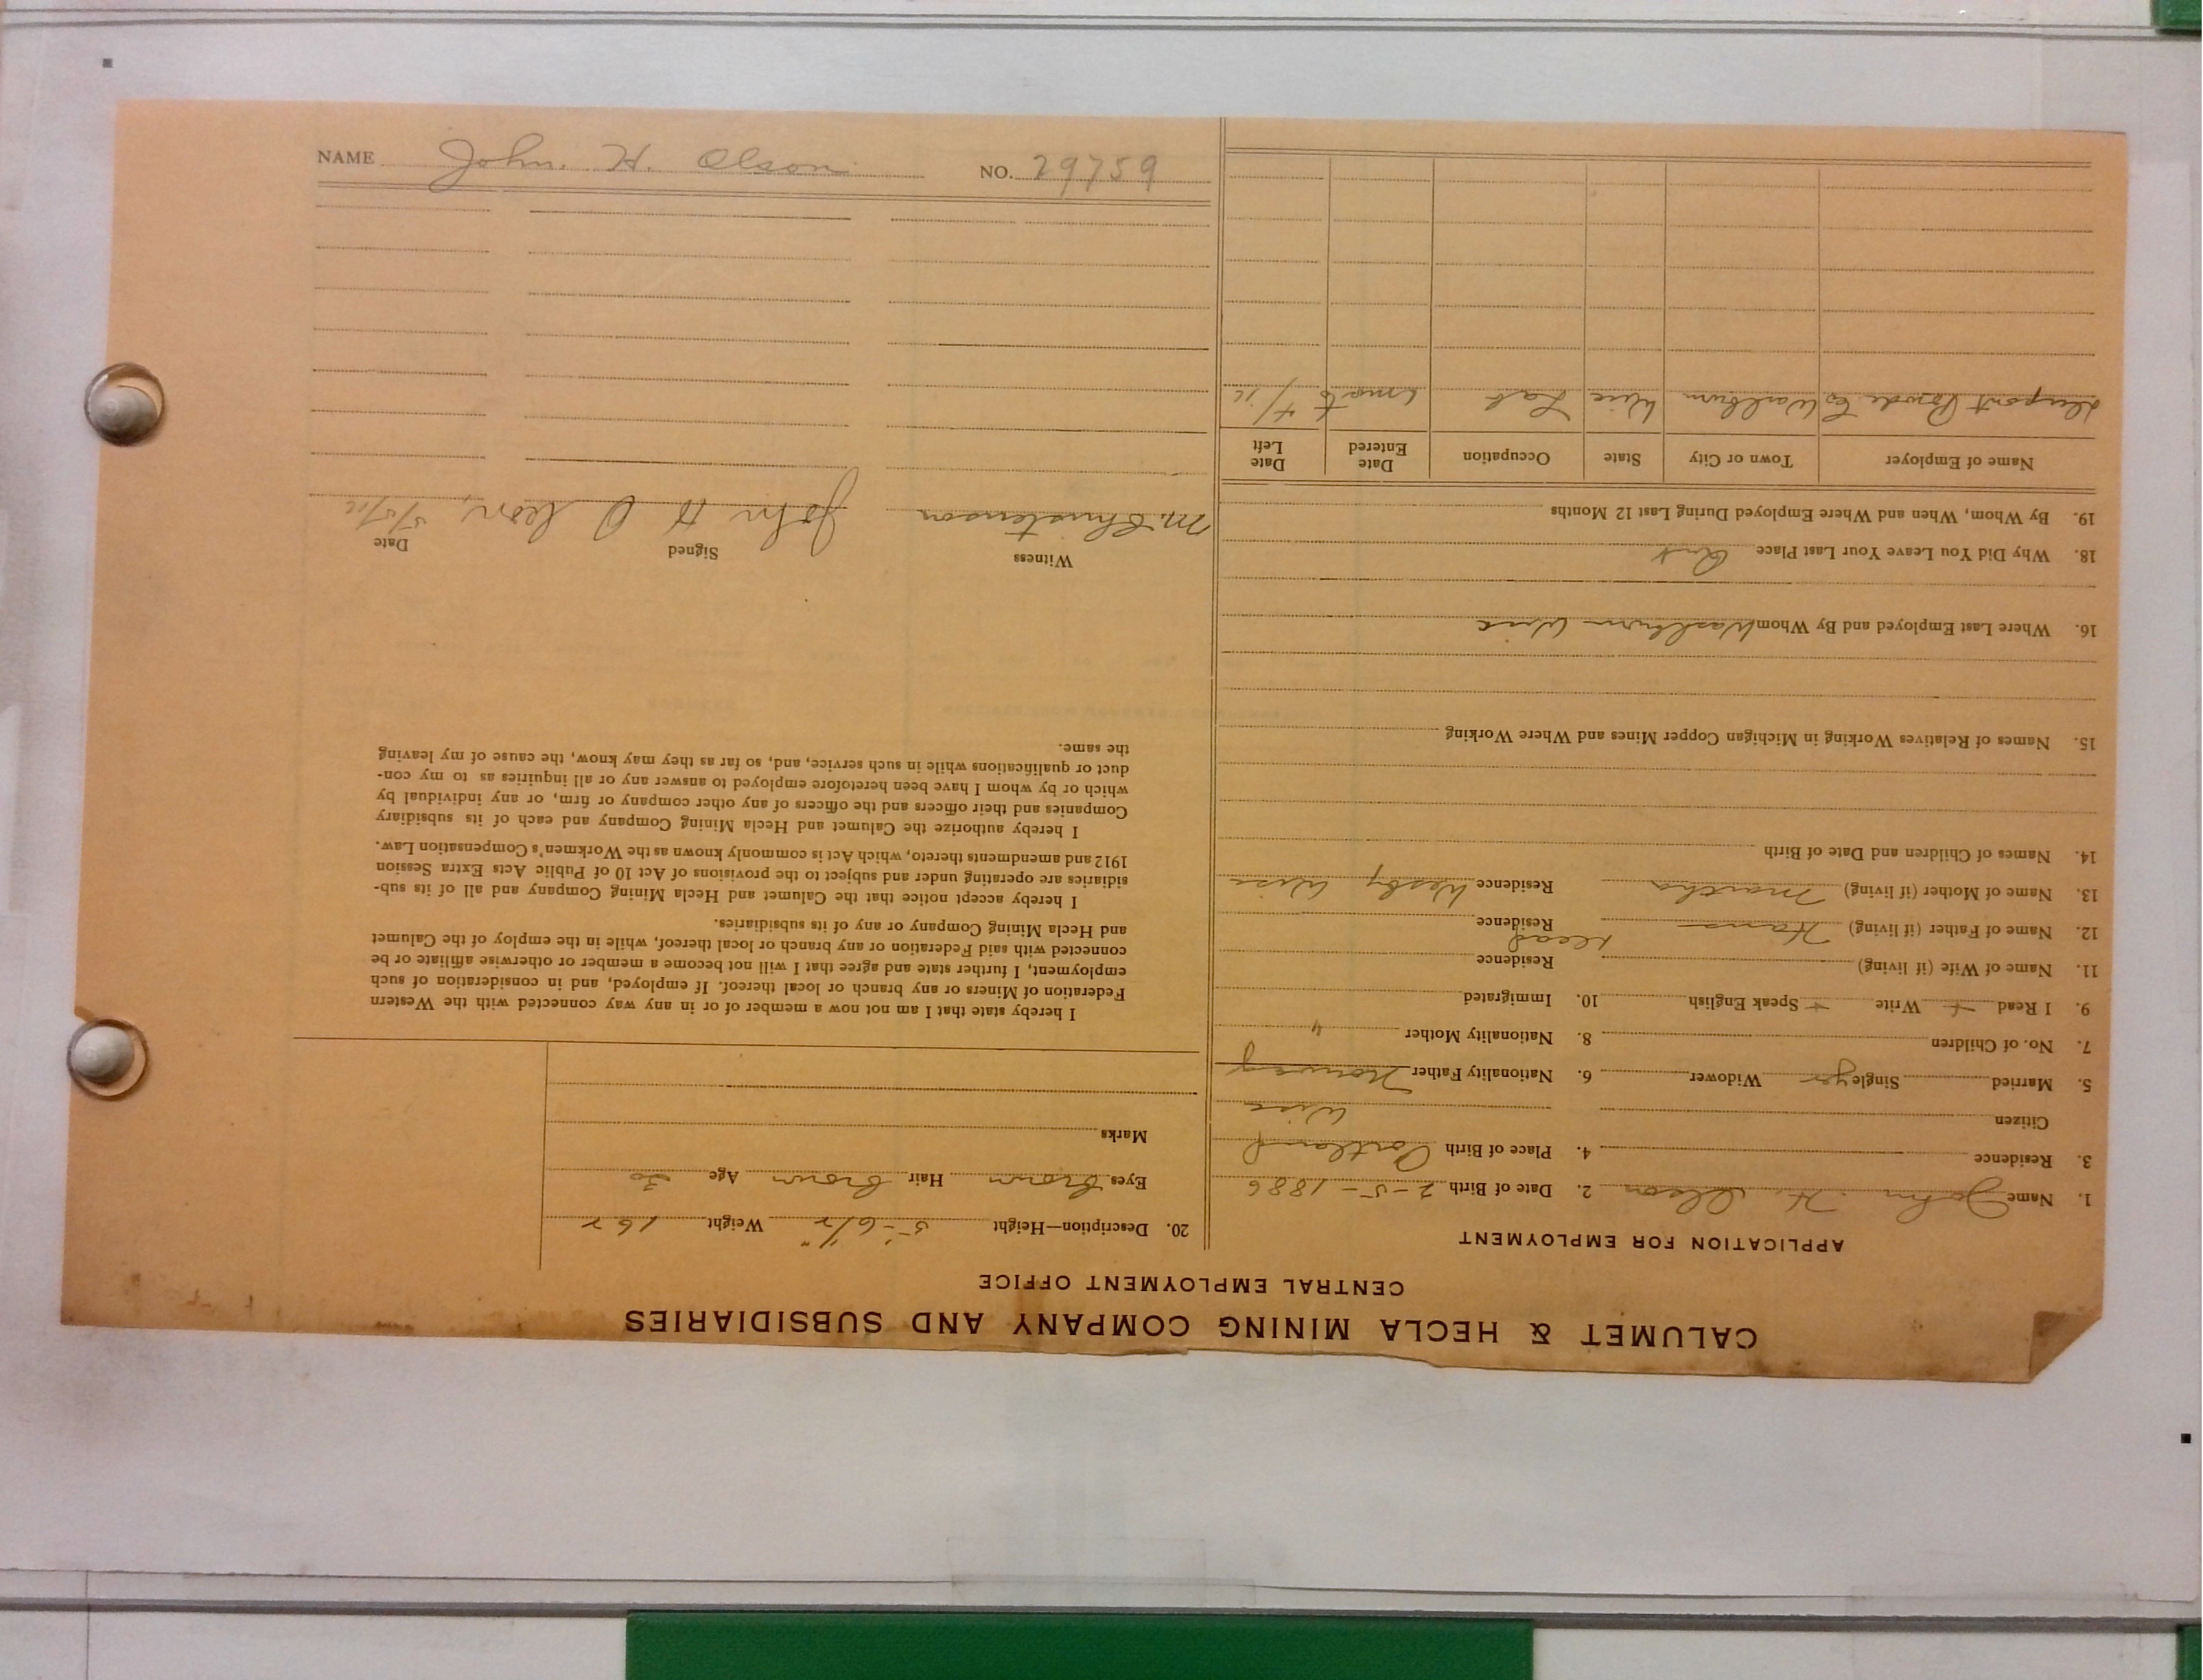 CALUMET & HECLA MINING COMPANY AND SUBSIDIARIES
CENTRAL EMPLOYMENT OFFICE
APPLICATION FOR EMPLOYMENT
1. Name John H. Olson 2. Date of Birth 2-5-1886
3. Residence 4. Place of Birth Portland
Citizen Wisc
5. Married Single yes Widower 6. Nationality Father Norway
7. No. of Children 8. Nationality Mother "
9. I Read + Write + Speak English 10. Immigrated
11. Name of Wife (if living) Residence
12. Name of Father (if living) Hans Residence Dead
13. Name of Mother (if living) Martha Residence Wesby Wisc
14. Names of Children and Date of Birth
15. Names of Relatives Working in Michigan Copper Mines and Where Working
16. Where Last Employed and By Whom Washburn Wisc
18. Why Did You Leave Your Last Place
19. By Whom, When and Where Employed During Last 12 Months
Name of Employer Town or City State Occupation Date Entered Date Left
Dupont Powde Co Washburn Wisc Lab 6 mos 4/16
20. Description—Height 5'-6 1/2" Weight 162
Eyes Brown Hair Brown Age 30
Marks
I hereby state that I am not now a member of or in any way connected with the Western
Federation of Miners or any branch or local thereof. If employed, and in consideration of such
employment, I further state and agree that I will not become a member or otherwise affiliate or be
connected with said Federation or any branch or local thereof, while in the employ of the Calumet
and Hecla Mining Company or any of its subsidiaries.
I hereby accept notice that the Calumet and Hecla Mining Company and all of its sub-
sidiaries are operating under and subject to the provisions of Act 10 of Public Acts Extra Session
1912 and amendments thereto, which Act is commonly known as the Workmen's Compensation Law.
I hereby authorize the Calumet and Hecla Mining Company and each of its subsidiary
Companies and their officers and the officers of any other company or firm, or any individual by
which or by whom I have been heretofore employed to answer any or all inquiries as to my con-
duct or qualifications while in such service, and, so far as they may know, the cause of my leaving
the same.
Witness Signed Date
M. Christenson John H Olson 5/5/16
NAME John. H. Olson NO. 29759